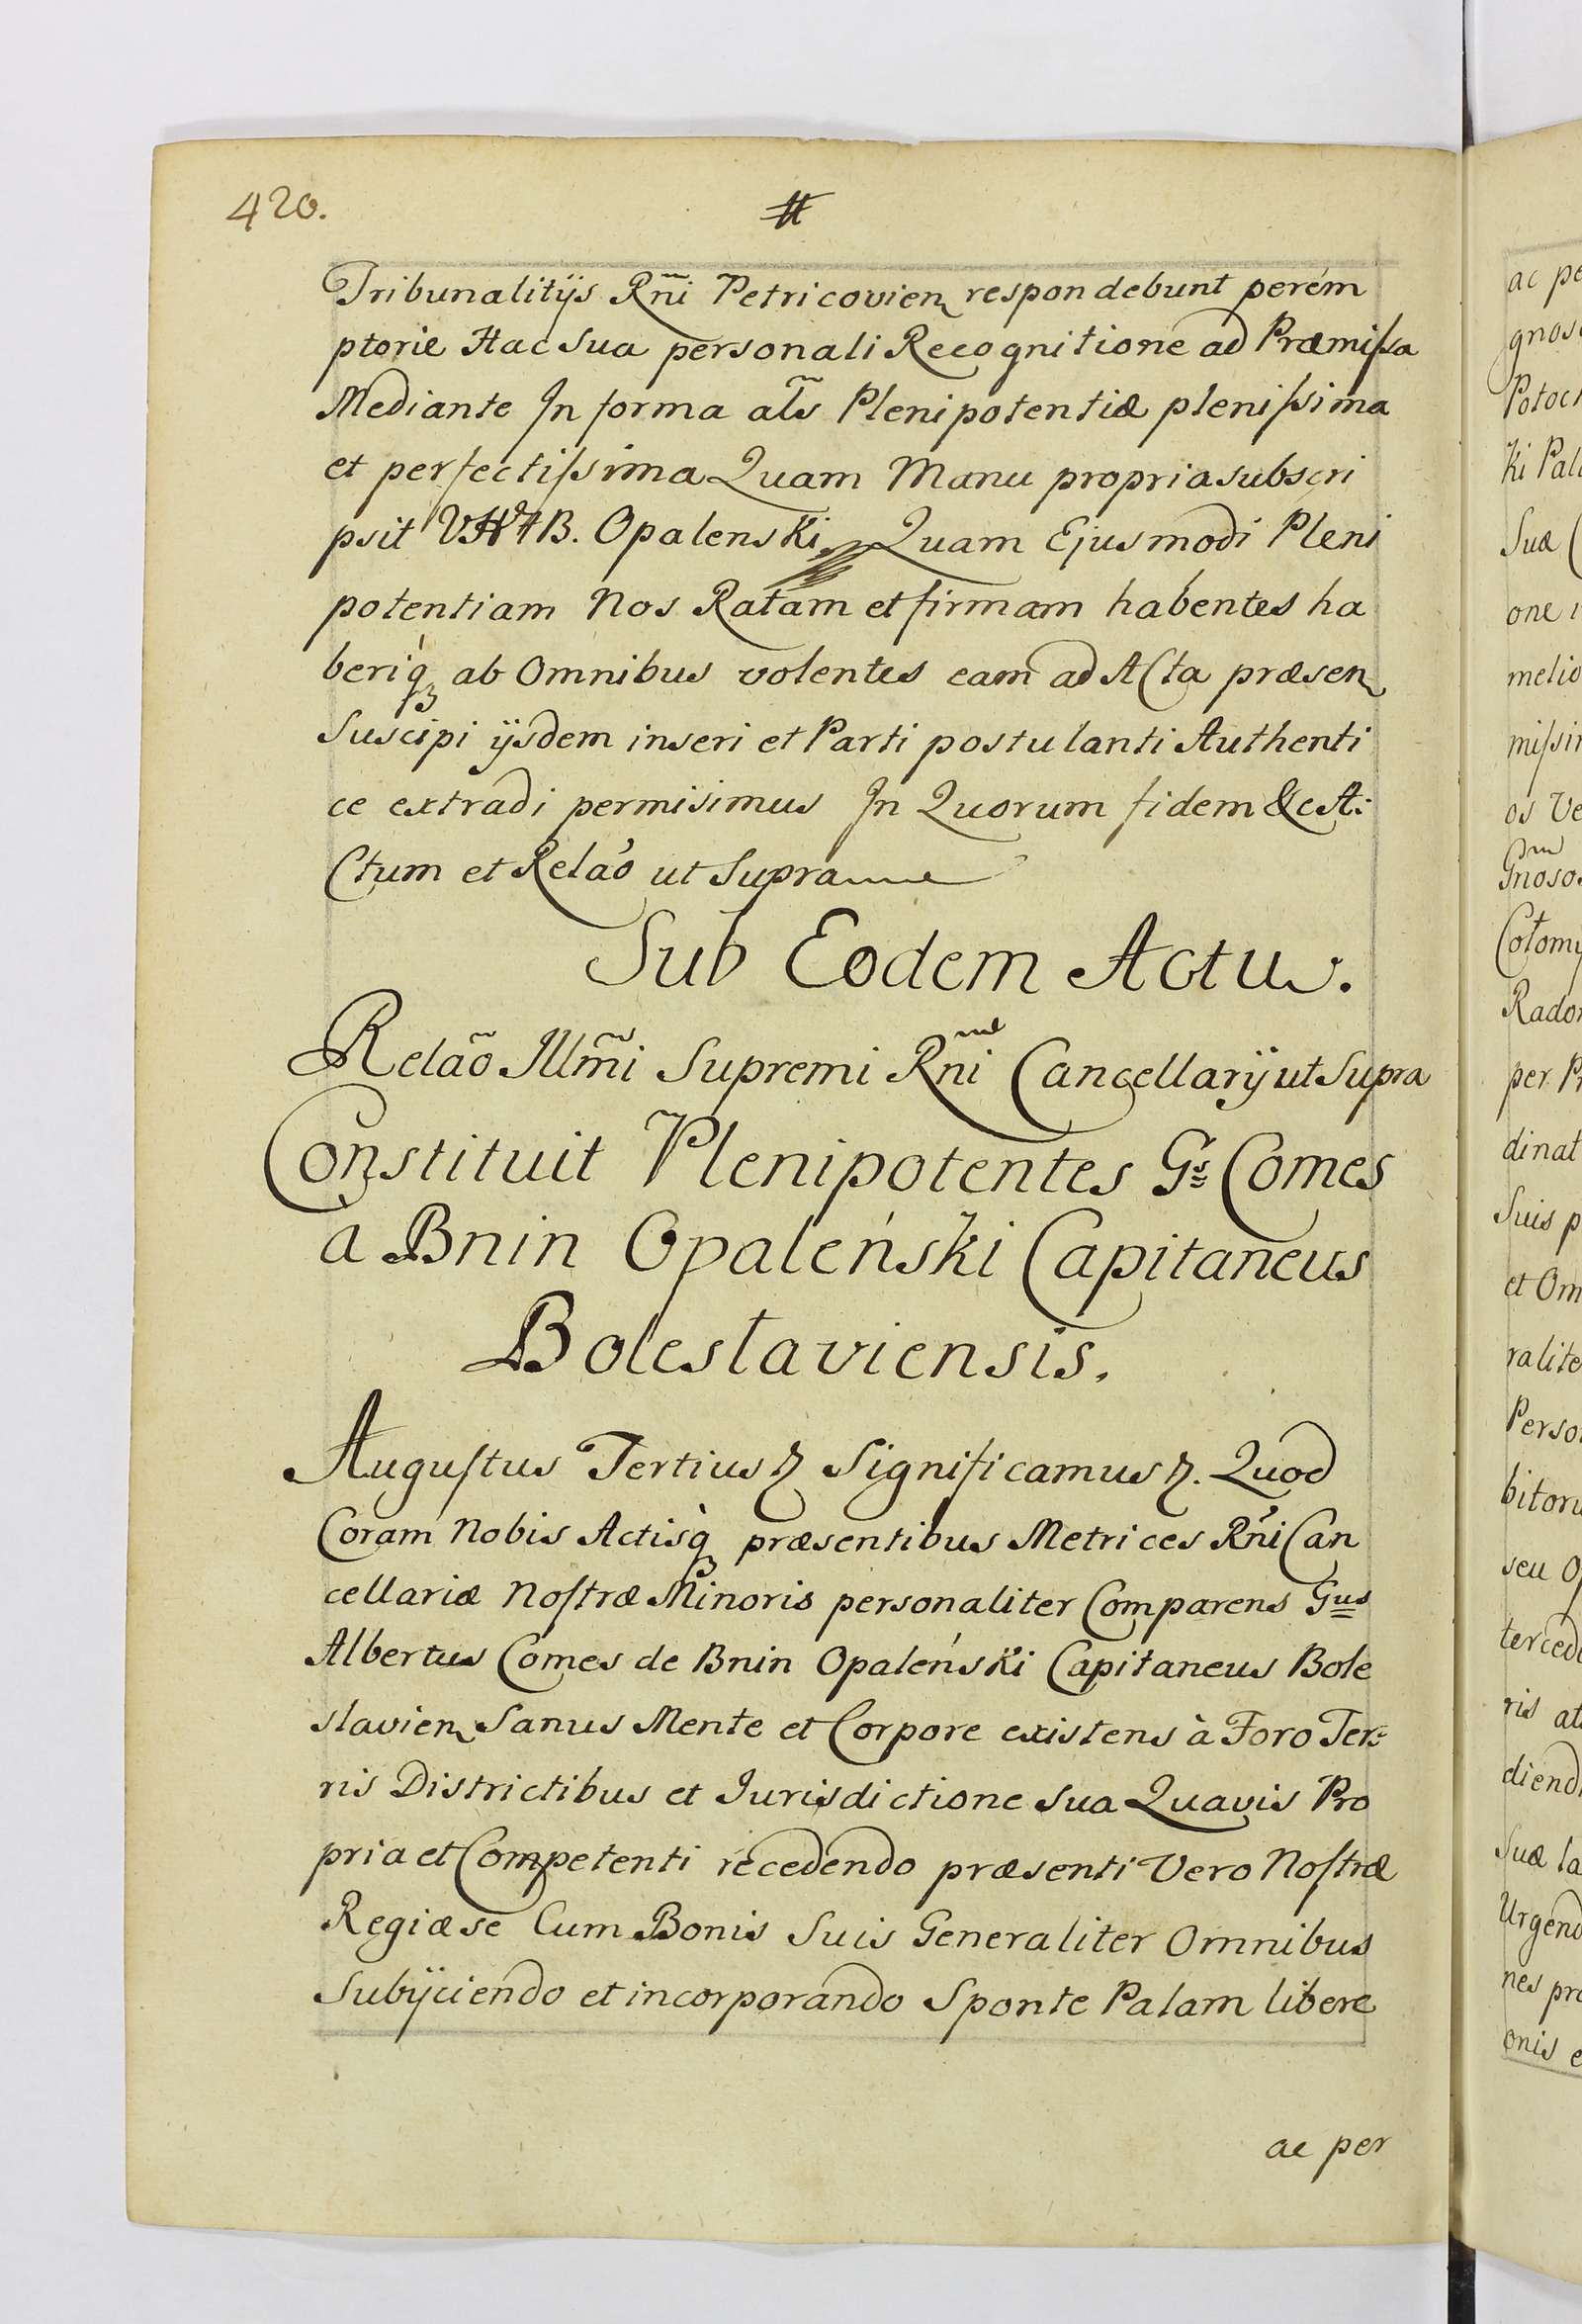 420.
Tribunalitijs Rñi Petricovien respondebunt perém
ptorie Hac Sua personali Recognitione ad Præmissa
Mediante In forma al̃s Plenipotentiæ plenissima
et perfectissima Quam Manu propria subscri
psit B. Opalenski. Quam Ejusmodi Pleni
potentiam Nos Ratam et firmam habentes ha
beriq́ ab Omnibus volentes eam ad Acta præsen
Suscipi ijsdem inseri et Parti postulanti Authenti
ce extradi permisimus In Quorum fidem &c A:
ctum et Relaó ut Supra
Sub Eodem Actu.
Relão Illm̃i Supremi Rñi Cancellarij ut Supra
Constituit Plenipotentes Gs Comes
a Bnin Opaleński Capitaneus
Boleslaviensis.
Augustus Tertius Significamus. Quod
Coram Nobis Actisq̀ præsentibus Metrices Rńi Can
cellariæ Nostræ Minoris personaliter Comparens Gus
Albertus Comes de Bnin Opaleński Capitaneus Bole
slavien Sanus Mente et Corpore existens à Foro Ter:
ris Districtibus et Jurisdictione Sua Quavis Pro
pria et Competenti recedendo præsenti Vero Nostræ
Regiæ se Cum Bonis Suis Generaliter Omnibus
Subijciendo et incorporando Sponte Palam libere
ac per
ac pe
gnos
Potoc
ki Pal
Suæ
one
melio
missi
os Ve
Gnoso
Colom
Rado
per P
dinat
Suis p
et Om
ralite
Perso
bitor
seu O
terced
ris at
diend
Suæ la
Urgend
nes pr
onis e